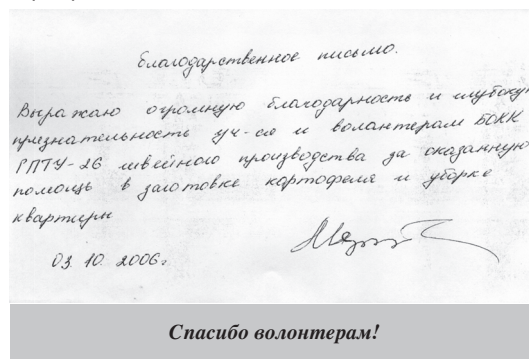 Благодарственное письмо.
Выражаю огромную благодарность и глубокую
признательность уч-ся и волантерам БОКК
ГПТУ-26 швейного производства за оказанную
помощь в заготовке картофеля и уборке
квартиры
03. 10. 2006г.
Спасибо волонтерам!